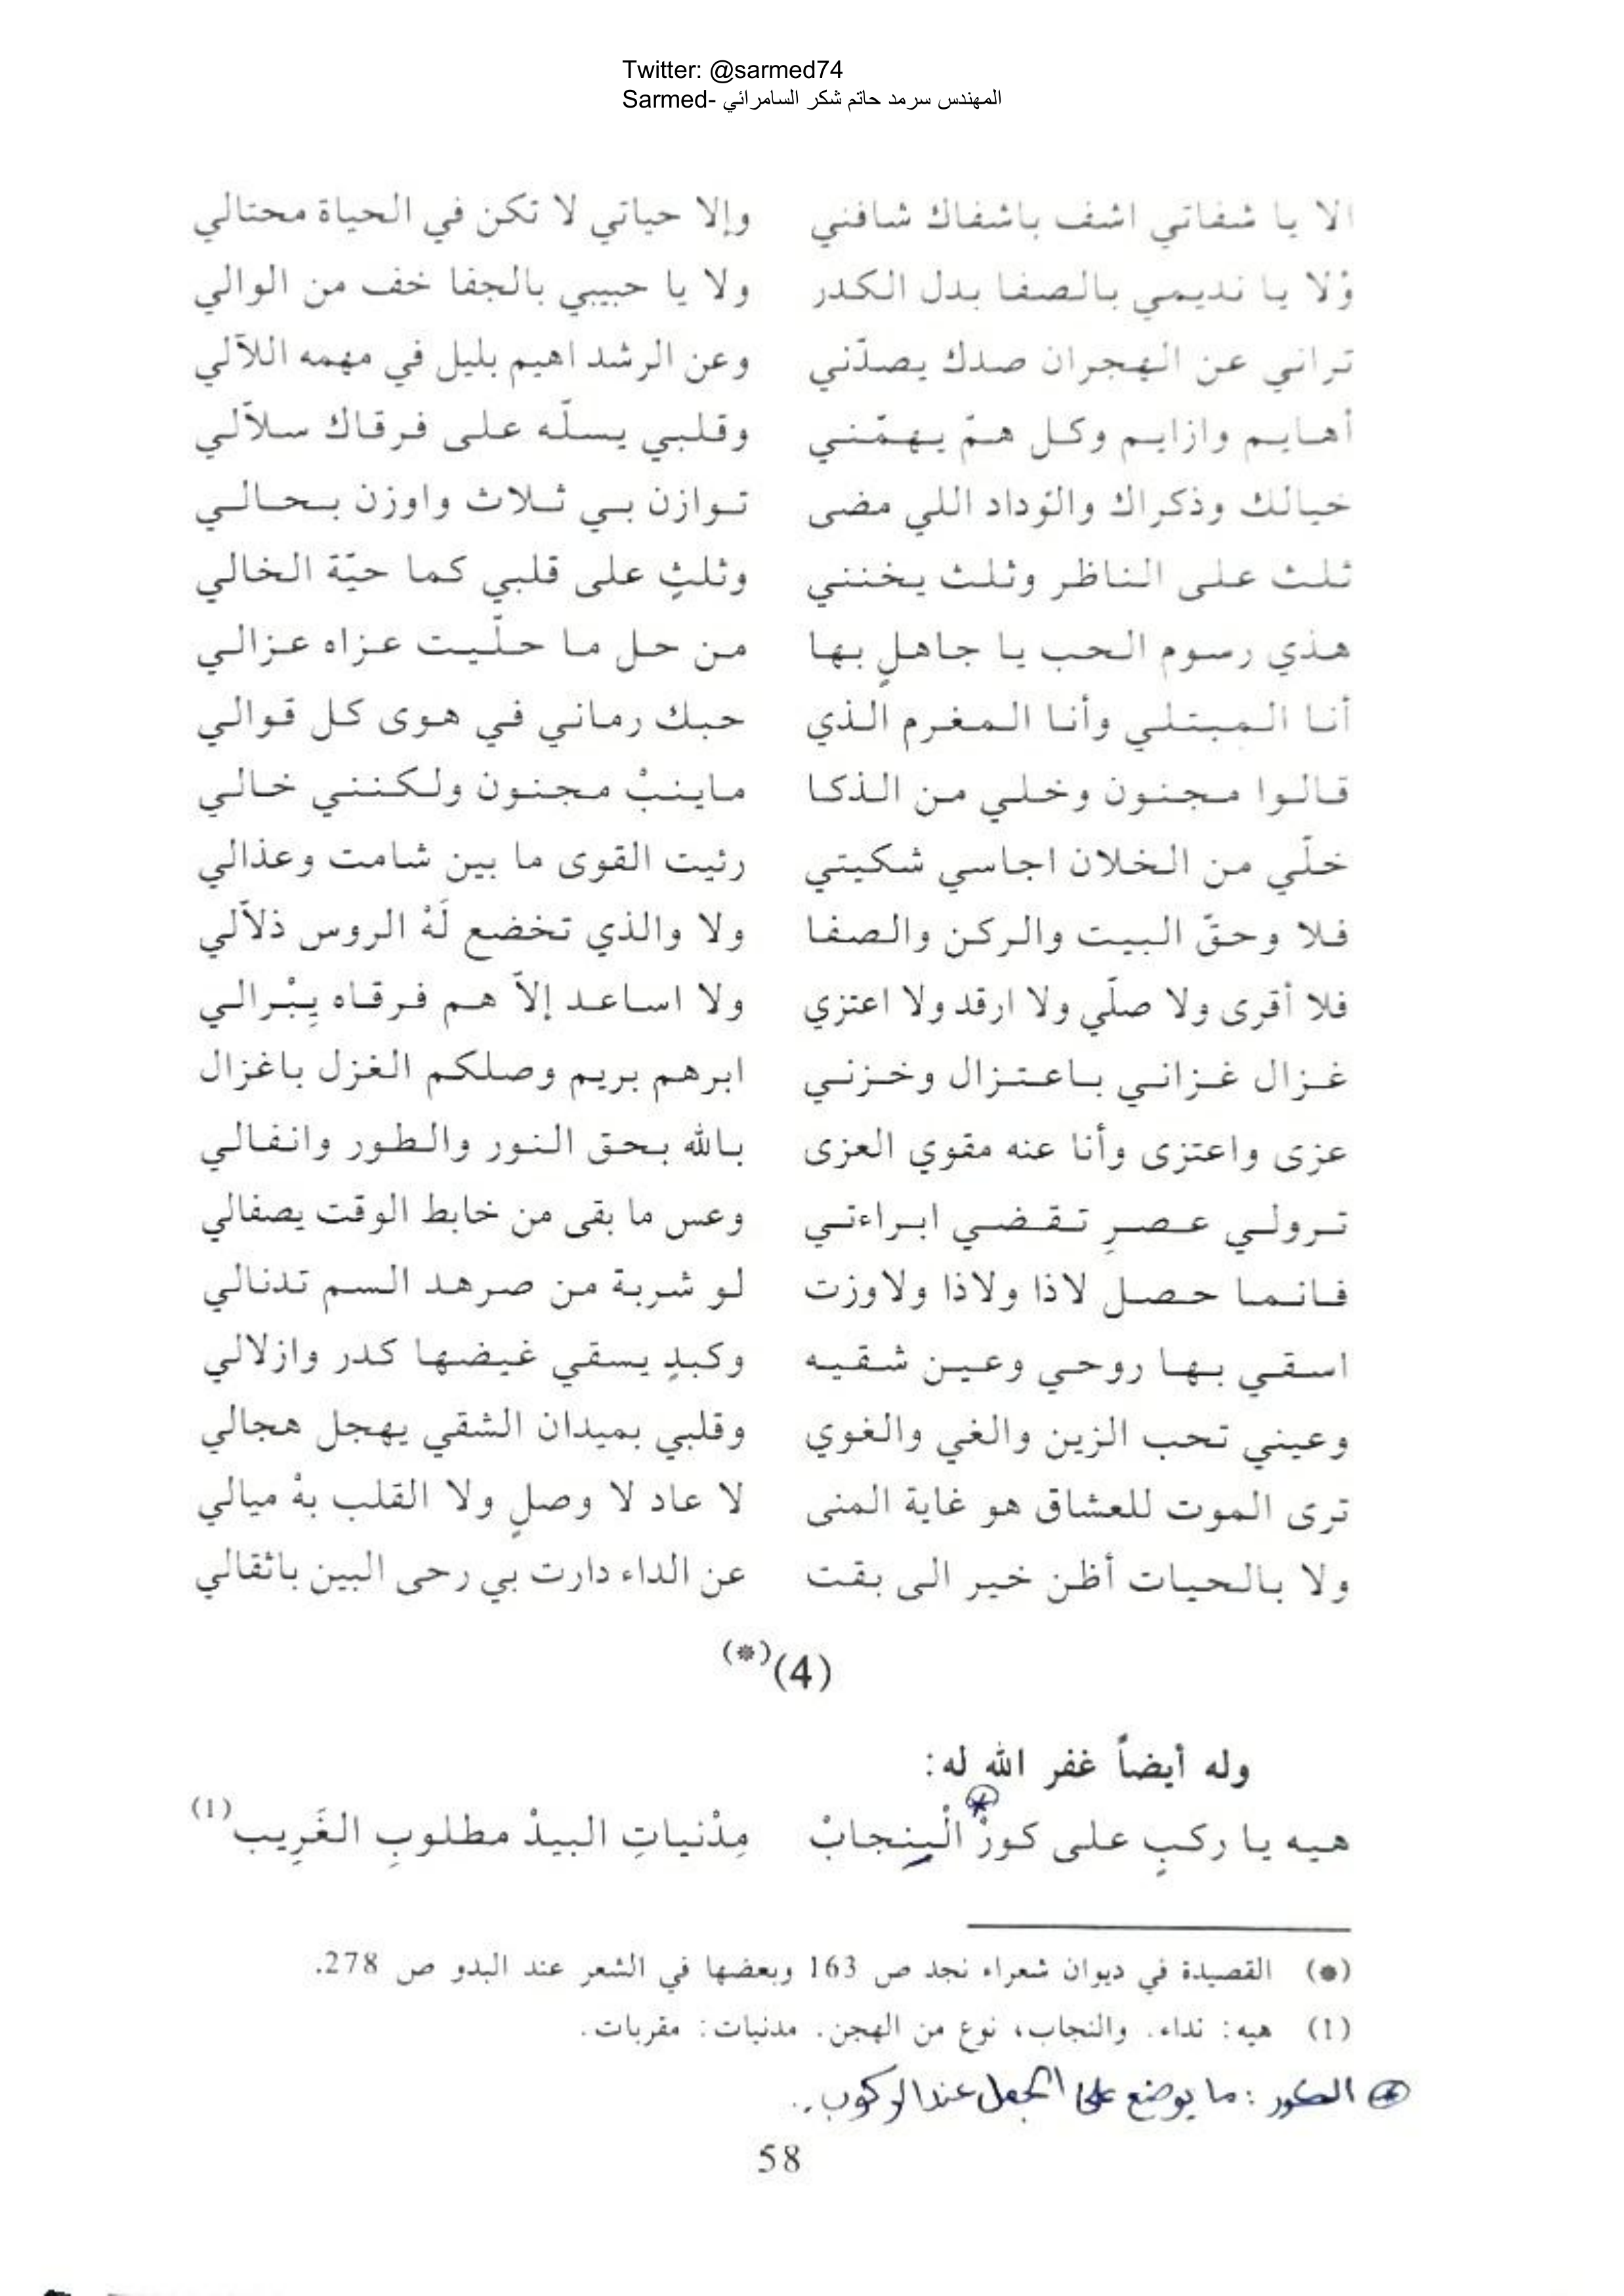 Twitter: @sarmed74
Sarmed- المهندس سرمد حاتم شكر السامرائي
الا يا شفاتي اشف باشفاك شافني وإلا حياتي لا تكن في الحياة محتالي
وْلا يا نديمي بالصفا بدل الكدر ولا يا حبيبي بالجفا خف من الوالي
تراني عن الهجران صدك يصدّني وعن الرشد اهيم بليل في مهمه اللآلي
أهايم وازايم وكل همّ يهمّني وقلبي يسلّه على فرقاك سلاّلي
خيالك وذكراك والوداد اللي مضى توازن بي ثلاث واوزن بحالي
ثلث على الناظر وثلث يخنني وثلثٍ على قلبي كما حيّة الخالي
هذي رسوم الحب يا جاهلٍ بها من حل ما حلّيت عزاه عزالي
أنا المبتلي وأنا المغرم الذي حبك رماني في هوى كل قوالي
قالوا مجنون وخلي من الذكا ماينبْ مجنون ولكنني خالي
خلّي من الخلان اجاسي شكيتي رثيت القوى ما بين شامت وعذالي
فلا وحقّ البيت والركن والصفا ولا والذي تخضع لَهْ الروس ذلاّلي
فلا أقرى ولا صلّي ولا ارقد ولا اعتزي ولا اساعد إلاّ هم فرقاه بِبْرالي
غزال غزاني باعتزال وخزني ابرهم بريم وصلكم الغزل باغزال
عزى واعتزى وأنا عنه مقوي العزى بالله بحق النور والطور وانفالي
ترولي عصرِ تقضي ابراءتي وعس ما بقى من خابط الوقت يصفالي
فانما حصل لاذا ولاذا ولاوزت لو شربة من صرهد السم تدنالي
اسقي بها روحي وعين شقيه وكبدٍ يسقي غيضها كدر وازلالي
وعيني تحب الزين والغي والغوي وقلبي بميدان الشقي يهجل هجالي
ترى الموت للعشاق هو غاية المنى لا عاد لا وصلٍ ولا القلب بهْ ميالي
ولا بالحيات أظن خير الى بقت عن الداء دارت بي رحى البين باثقالي
(4)(*)
وله أيضاً غفر الله له:
هيه يا ركبٍ على كورْ الْبِنجابْ مِدْنياتِ البيدْ مطلوبِ الغَرِيب(1)
(*) القصيدة في ديوان شعراء نجد ص 163 وبعضها في الشعر عند البدو ص 278.
(1) هيه: نداء. والنجاب، نوع من الهجن. مدنيات: مقربات.
* الكور: ما يوضع على الجمل عند الركوب..
58